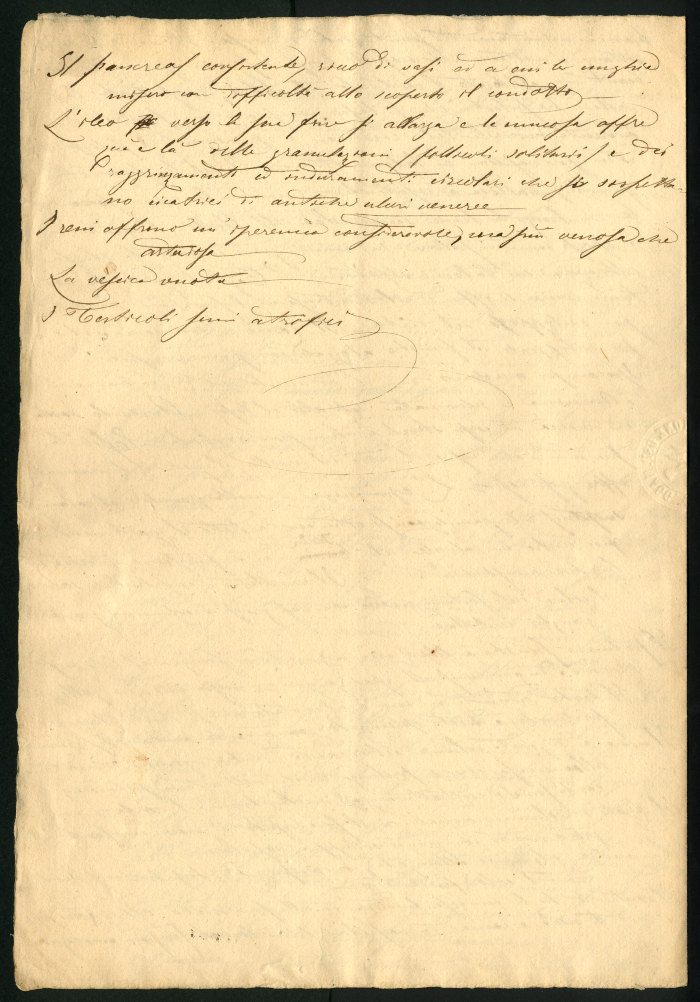 Il pancreas consistente, ricco di vasi ed a cui le unghie
misero con difficoltà allo scoperto il condotto
L'ileo verso la sua fine si allarga e la mucosa offre
qua e là delle granulazioni (follicoli solitarii) e dei
raggrinzamenti ed induramenti circolari che si sospetta-
no cicatrici di antiche ulceri veneree
I reni offrono un'iperemia considerevole, ma più venosa che
arteriosa
La vescica vuota
I Testicoli semi atrofici